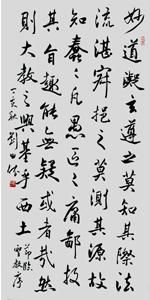 妙道凝玄遵之莫知其際法
流湛寂挹之莫測其源故
知蠢〻凡愚區〻庸鄙投
其旨趣能無疑或者哉然
則大教之興基乎西土 節臨
聖教序
丁亥秋 劉